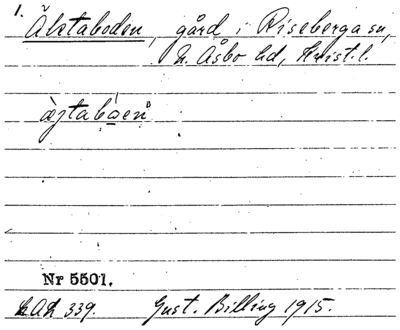 1.
Äktaboden, gård i Riseberga sn,
N. Åsbo hd, Krist. l.
Nr 5501.
LAL 339. Gust. Billing 1915.